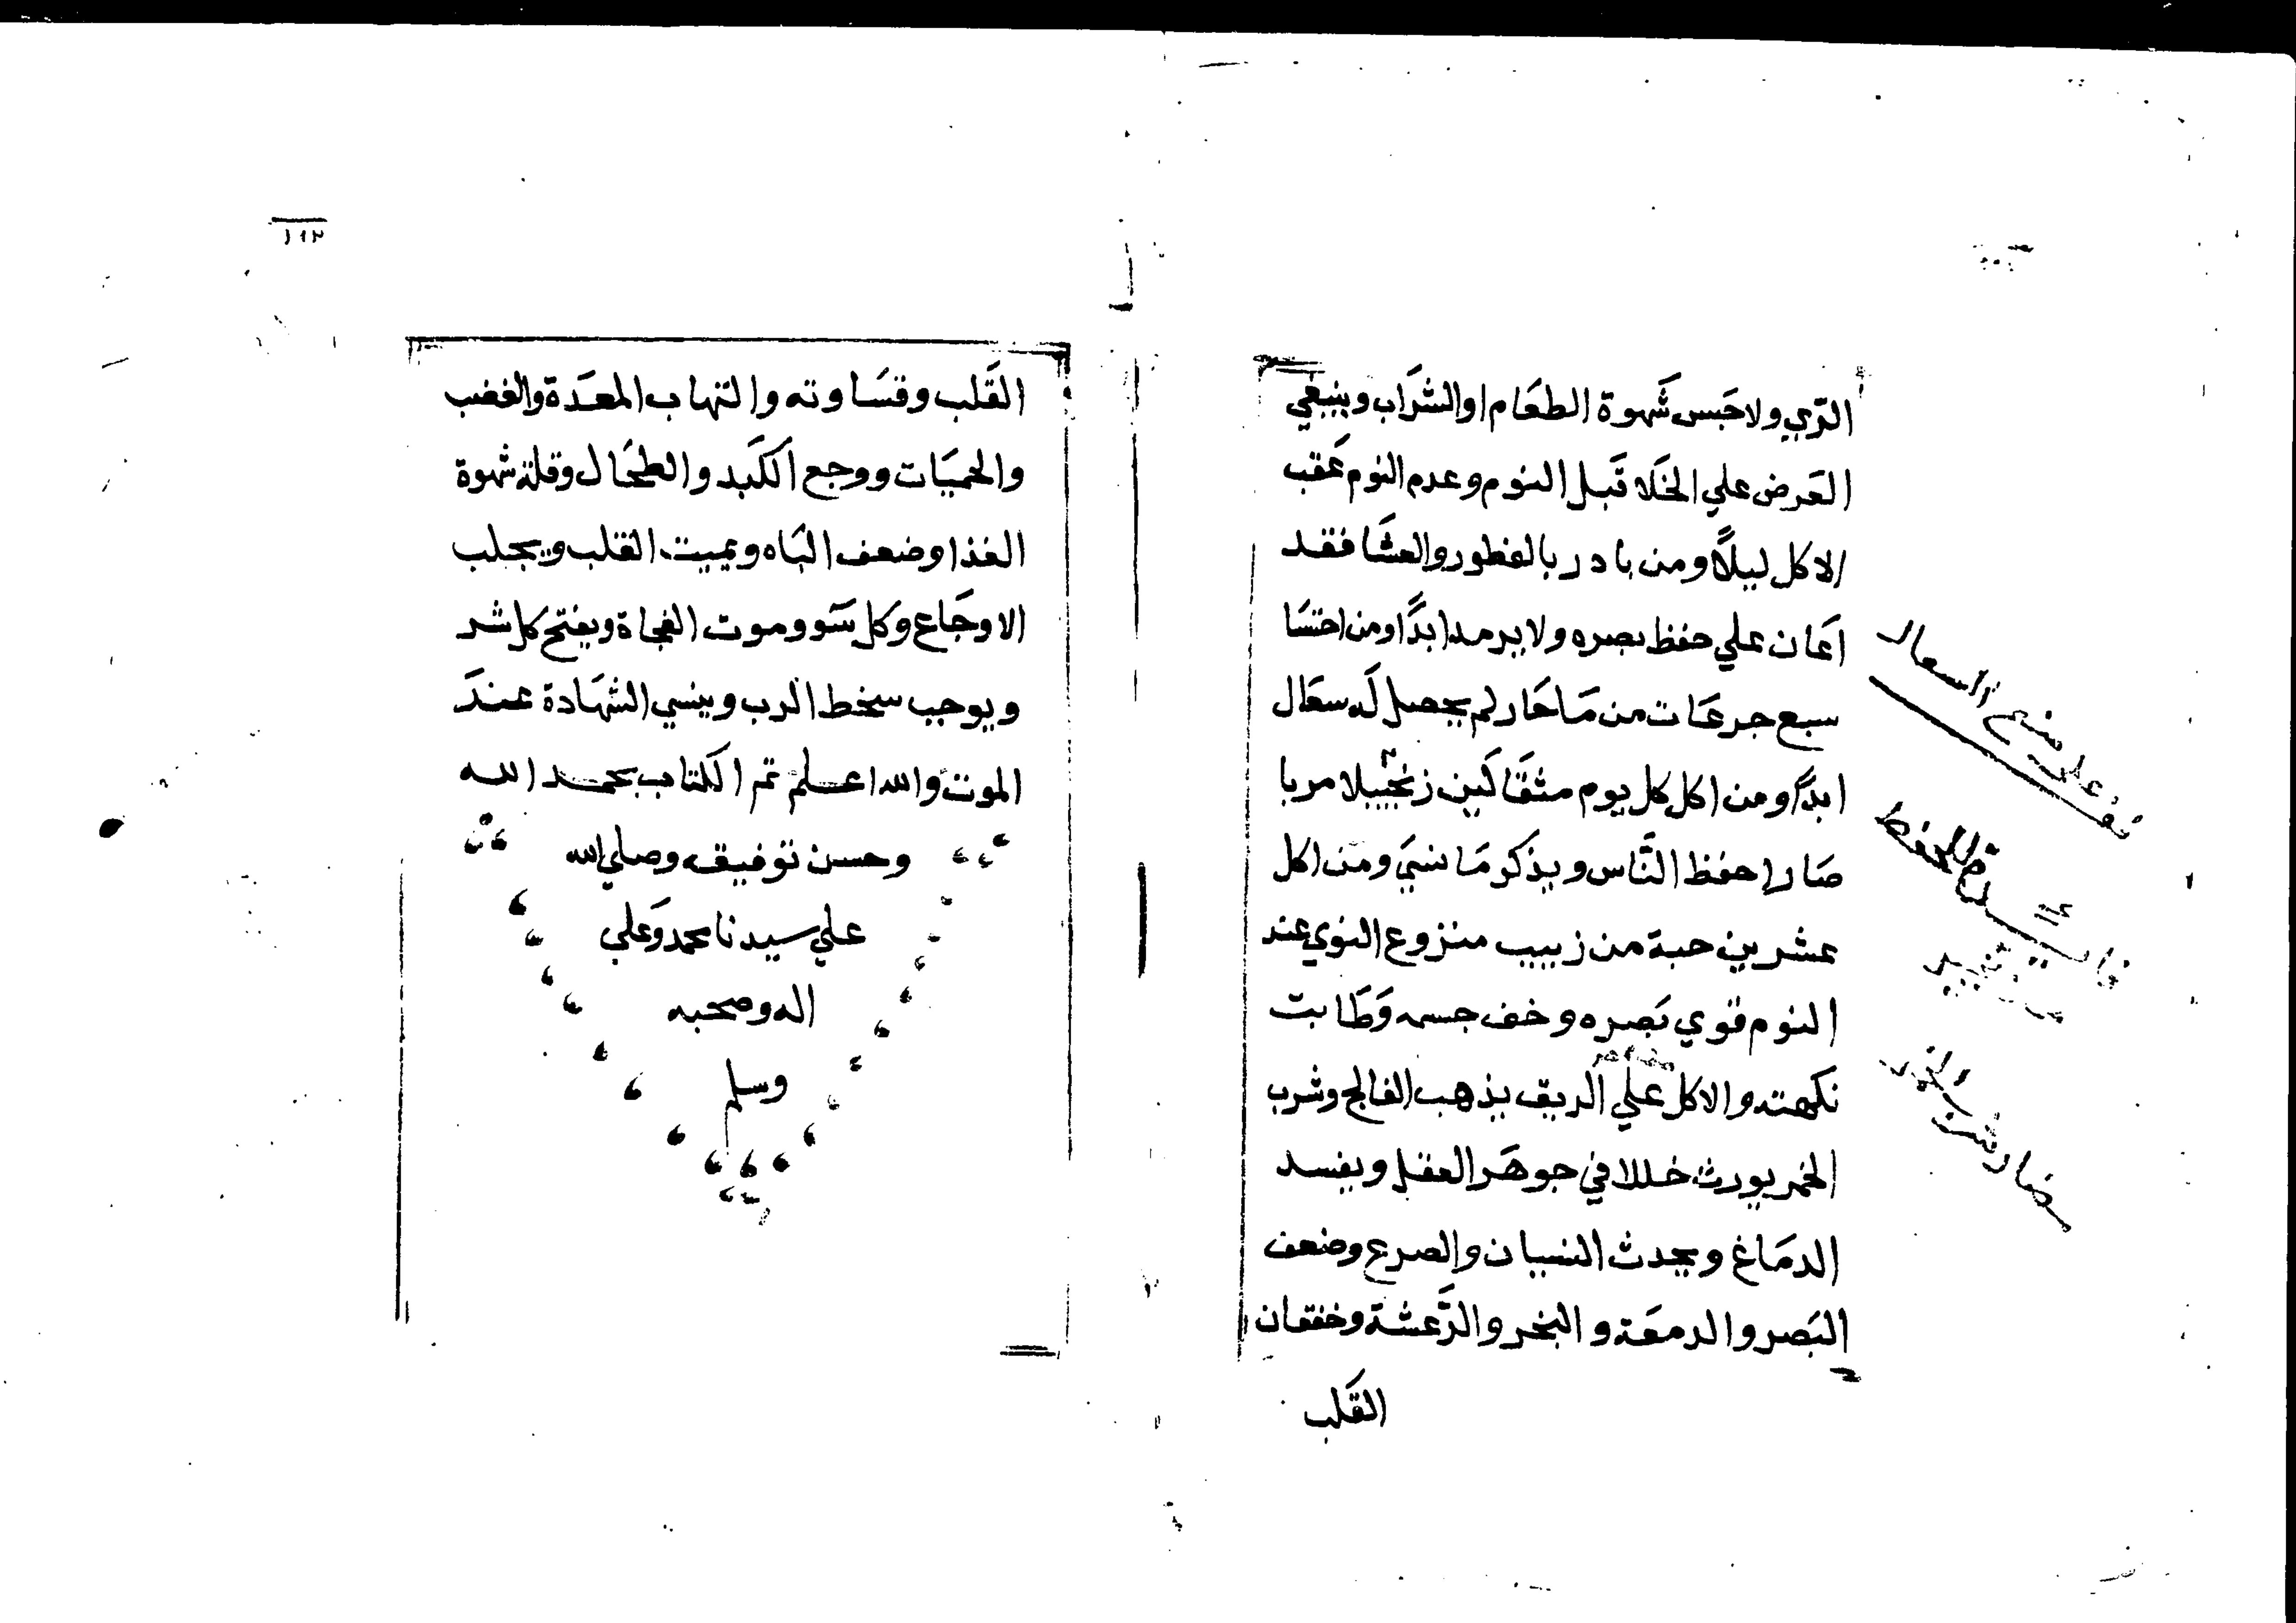 الرّي ولا حَبس شَهوة الطعَام او الشَرَاب وينبغي
العَرض علي الخَلا قَبل النوم وعدم النوم عَقب
الاكل ليلًا ومن بادر بالفطور والعشَا فقد
اعَان علي حفظ بصره ولا يرمد ابدًا ومن احتسَا
سبع جرعَات من مَا حَار لم يحصل لَه سعَال
ابدًا ومن اكل كل يوم مثقَالَين زنجبيلا مربا
صَار احفظ النَّاس ويذكر مَا نسيَ ومَن اكل
عشرين حبة من زبيب منزوع النوي عند
النوم قوي بَصره وخف جسمه وَطَابت
نَكهته والاكل علي الريق يذهب الفالج وشرب
الخمر يورث خللا في جوهَر العقل ويفسد
الدمَاغ ويحدث النسيان والصرع وضعف
البَصر والدمعَة والبخر والرَّعشة وخفقان
القَلب
السعال
للحفظ
١١٢
القَلب وقسَاوته والتهاب المعَدة والغضب
والحميَات ووجع الكَبد والطحَال وقلة شهوة
الغذا وضعف البَاه ويميت القلب ويجلب
الاوجَاع وكل سَو وموت الفجاة ويفتح كل شر
ويوجب سخط الرب وينسي الشهَادة عندَ
الموت والله اعلم تم الكتاب بحمد الله
وحسن توفيقه وصلي الله
علي سيدنا محمد وَعلي
اله وصحبه
وسلم